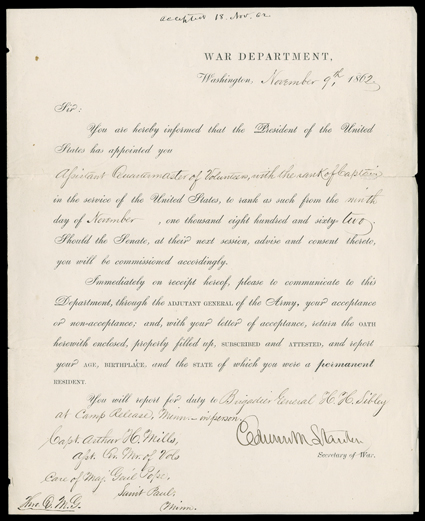 accepted 18. Nov. 62
WAR DEPARTMENT,
Washington, November 9th, 1862.
Sir:
You are hereby informed that the President of the United
States has appointed you
Assistant Quartermaster of Volunteers, with the rank of Captain
in the service of the United States, to rank as such from the ninth
day of November , one thousand eight hundred and sixty-two.
Should the Senate, at their next session, advise and consent thereto,
you will be commissioned accordingly.
Immediately on receipt hereof, please to communicate to this
Department, through the ADJUTANT GENERAL of the Army, your acceptance
or non-acceptance; and, with your letter of acceptance, return the OATH
herewith enclosed, properly filled up, SUBSCRIBED and ATTESTED, and report
your AGE, BIRTHPLACE, and the STATE of which you were a permanent
RESIDENT.
You will report for duty to Brigadier General H. H. Sibley
at Camp Release, Minn in person.
Edwin M Stanton
Secretary of War.
Capt. Arthur H. Mills,
Asst. Qr. Mr. of Vols
Care of Maj. Genl. Pope,
Saint Paul,
Minn.
Thro. Q. M. G.